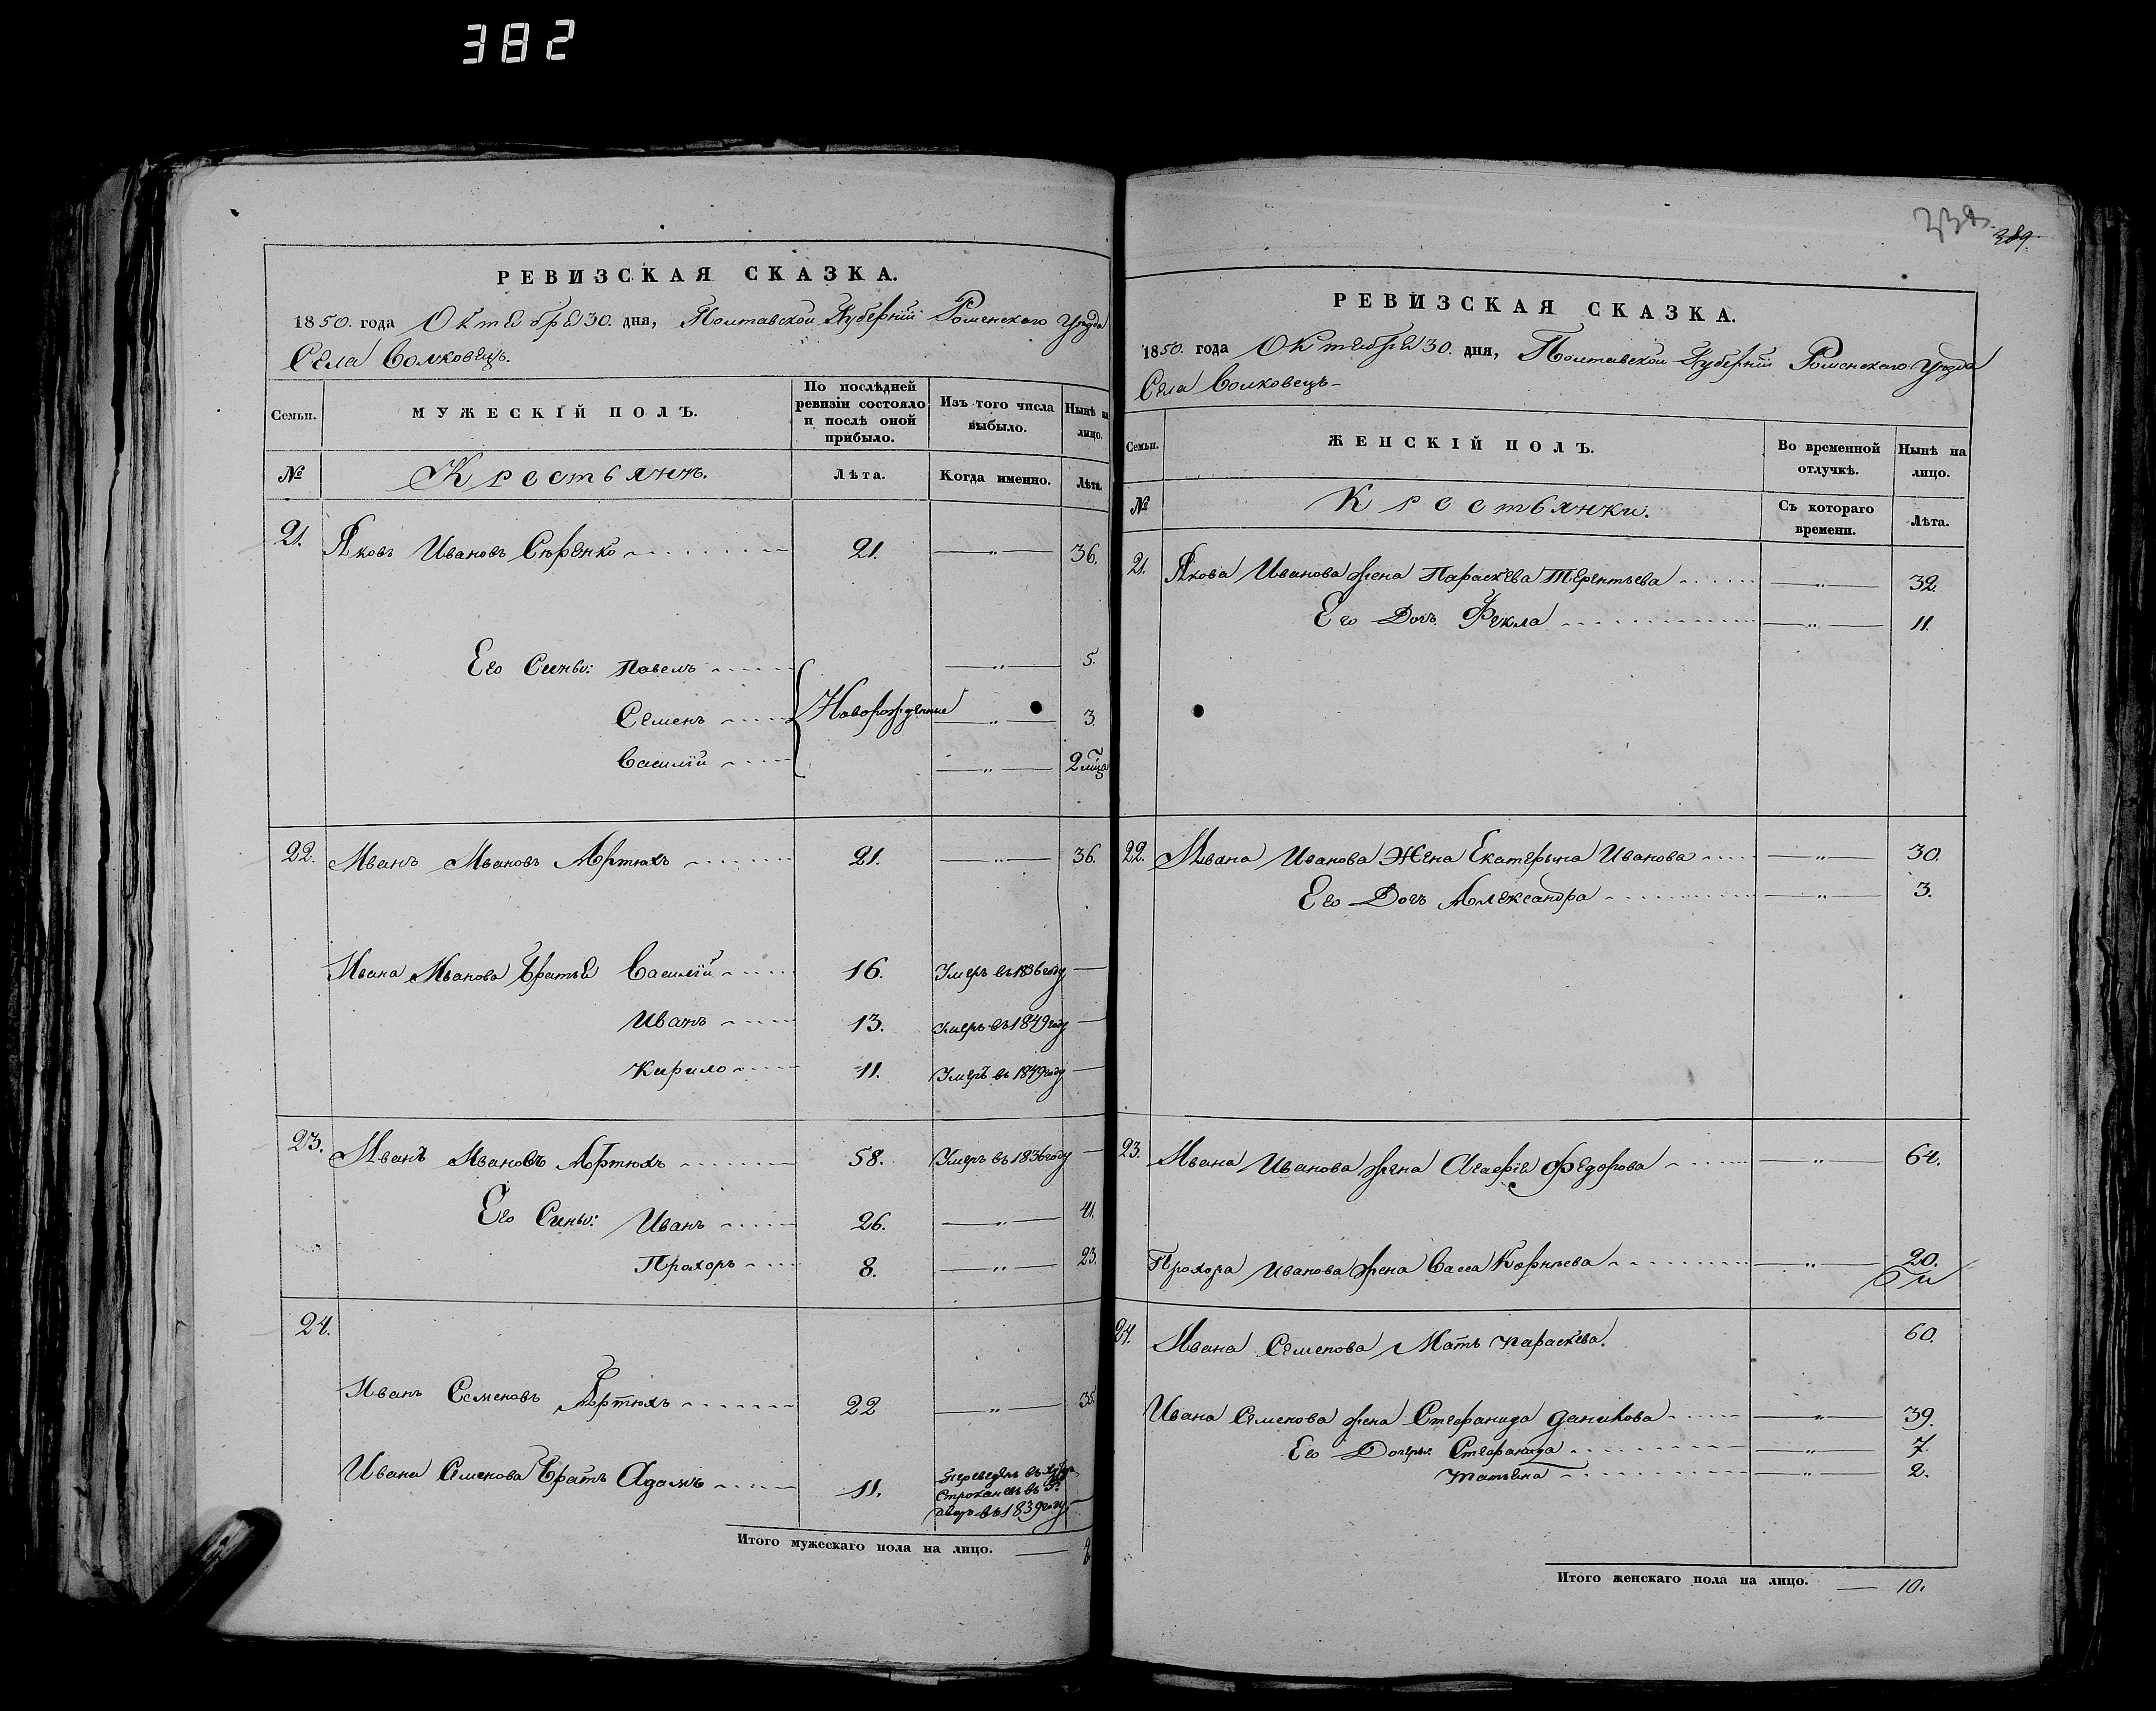 382
РЕВИЗСКАЯ СКАЗКА.
1850. года Октября 30. дня, Полтавской Губерніи Роменскаго Уезда
Села Волковецъ.
Семьи. МУЖЕСКІЙ ПОЛЪ. По послѣдней ревизіи состояло и послѣ оной прибыло. Изъ того числа выбыло. Нынѣ на лицо.
№ Крестьянъ. Лѣта. Когда именно. Лѣта.
21. Яковъ Ивановъ Сѣренко 21. — „ — 36.
Его Сины: Павелъ — „ — 5.
Семенъ Новорожденные — „ — 3.
Василій — „ — 2 мца
22. Иванъ Ивановъ Артюхъ 21. — „ — 36.
Ивана Иванова Братья Василій 16. Умеръ въ 1836 году —
Иванъ 13. Умеръ въ 1849 году —
Кирило 11. Умеръ въ 1849 году —
23. Иванъ Ивановъ Артюхъ 58. Умеръ въ 1836 году —
Его Сины: Иванъ 26. — „ — 41.
Прохоръ 8. — „ — 23.
24.
Иванъ Семеновъ Артюхъ 22 — „ — 35.
Ивана Семенова Братъ Адамъ 11. Переведенъ въ
въ
дворъ въ 1839 году —
Итого мужескаго пола на лицо. —
389.
РЕВИЗСКАЯ СКАЗКА.
1850. года Октября 30. дня, Полтавской Губерніи Роменскаго Уезда
Села Волковецъ
Семьи. ЖЕНСКІЙ ПОЛЪ. Во временной отлучкѣ. Нынѣ на лицо.
№ Крестьянки. Съ котораго времени. Лѣта.
21. Якова Иванова жена Параскева Терентьева — „ — 32.
Его Дочъ Фекла — „ — 11.
22. Ивана Иванова Жена Екатерына Иванова — „ — 30.
Его Дочъ Александра — „ — 3.
23. Ивана Иванова жена Агафія Федорова — „ — 64.
Прохора Иванова жена Васса Корнѣева — „ — 20.
24. Ивана Семенова Мать Параскева. 60.
Ивана Семенова жена Стефанида Данилова — „ — 39.
Его Дочеры: Стефанида — „ — 7.
Татьяна — „ — 2.
Итого женскаго пола на лицо. — 10.